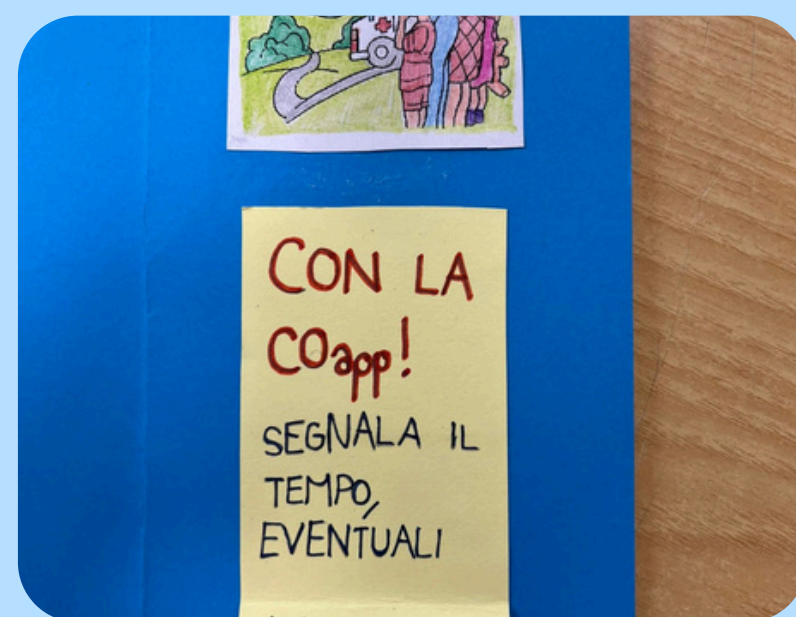 CON LA
COapp!
SEGNALA IL
TEMPO,
EVENTUALI